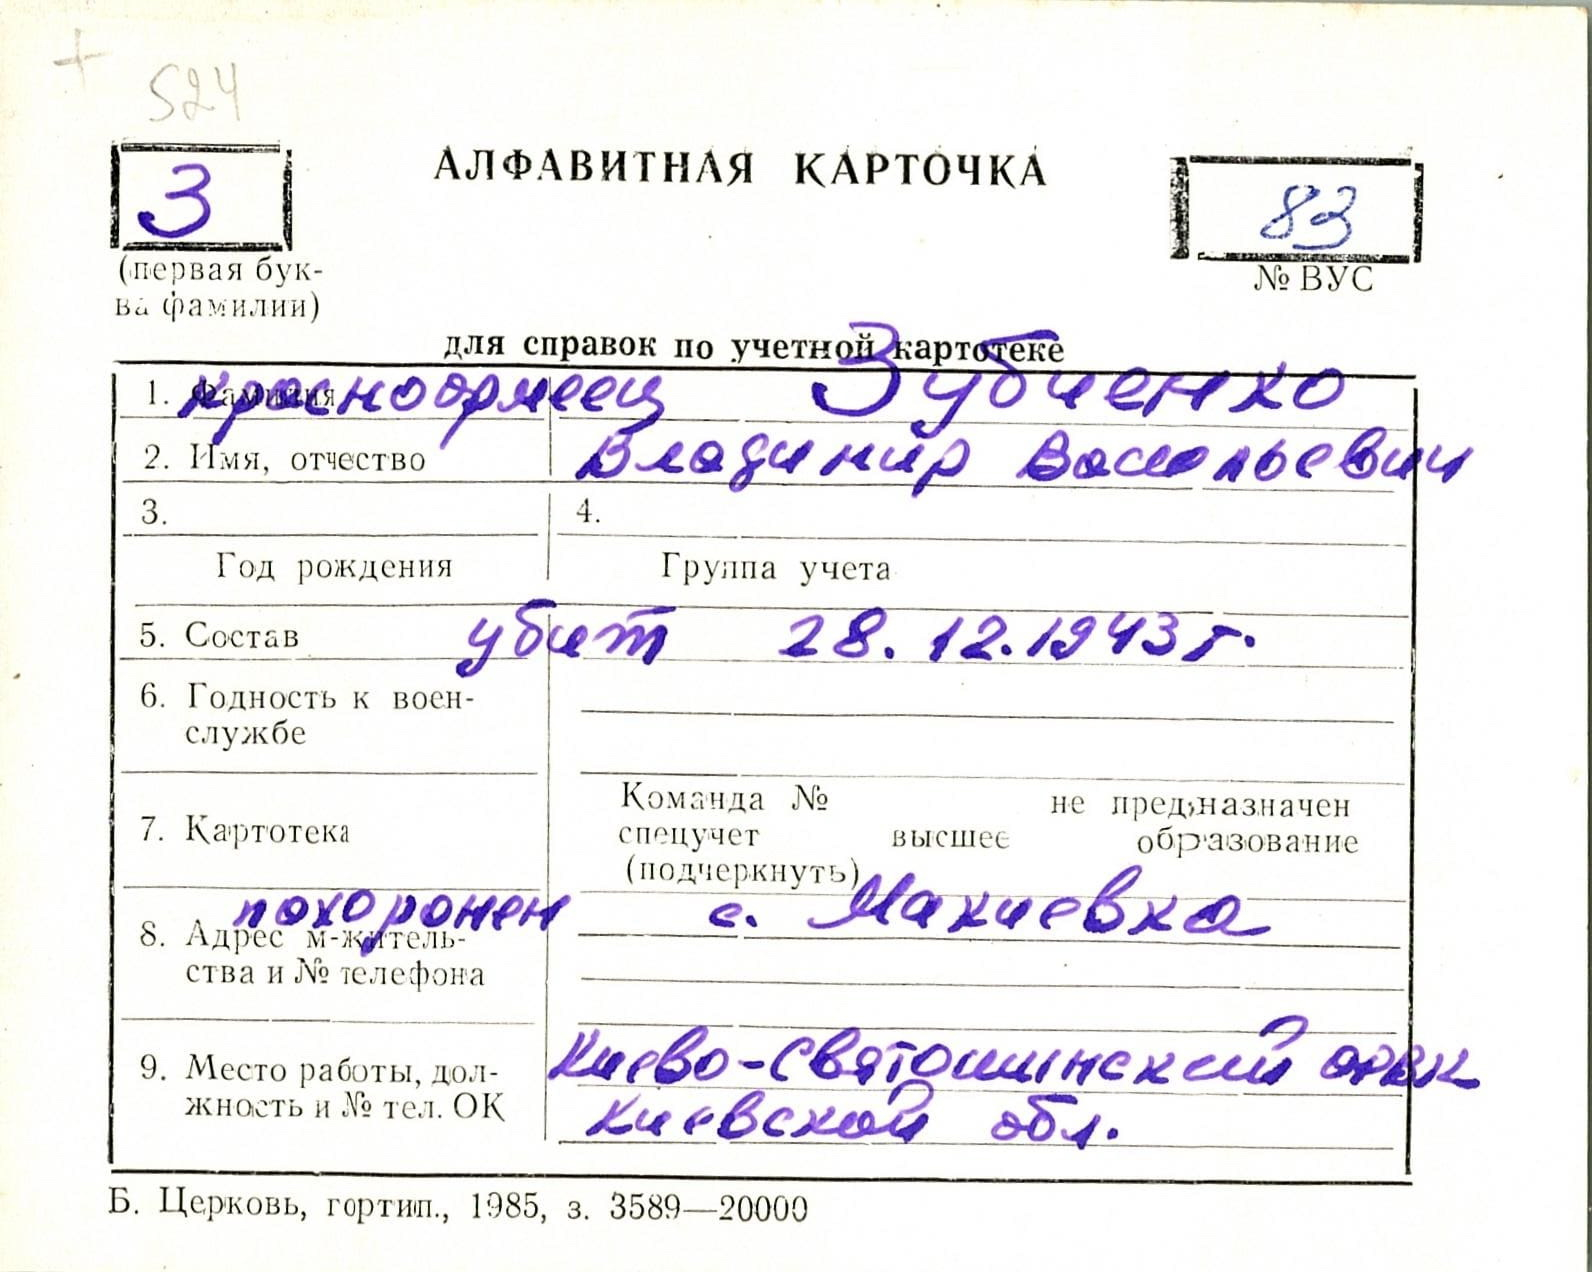 + 524
З
АЛФАВИТНАЯ КАРТОЧКА
83
(первая бук-
ва фамилии)
№ ВУС
для справок по учетной картотеке
1. Фамилия красноармеец Зубченко
2. Имя, отчество Владимир Васильевич
3. 4.
Год рождения Группа учета
5. Состав убит 28.12.1943 г.
6. Годность к воен-
службе
Команда № не предназначен
7. Картотека спецучет высшее образование
(подчеркнуть)
похоронен с. Макиевка
8. Адрес м-житель-
ства и № телефона
Киево-Святошинский ОРВК
9. Место работы, дол-
жность и № тел. ОК Киевской обл.
Б. Церковь, гортип., 1985, з. 3589—20000